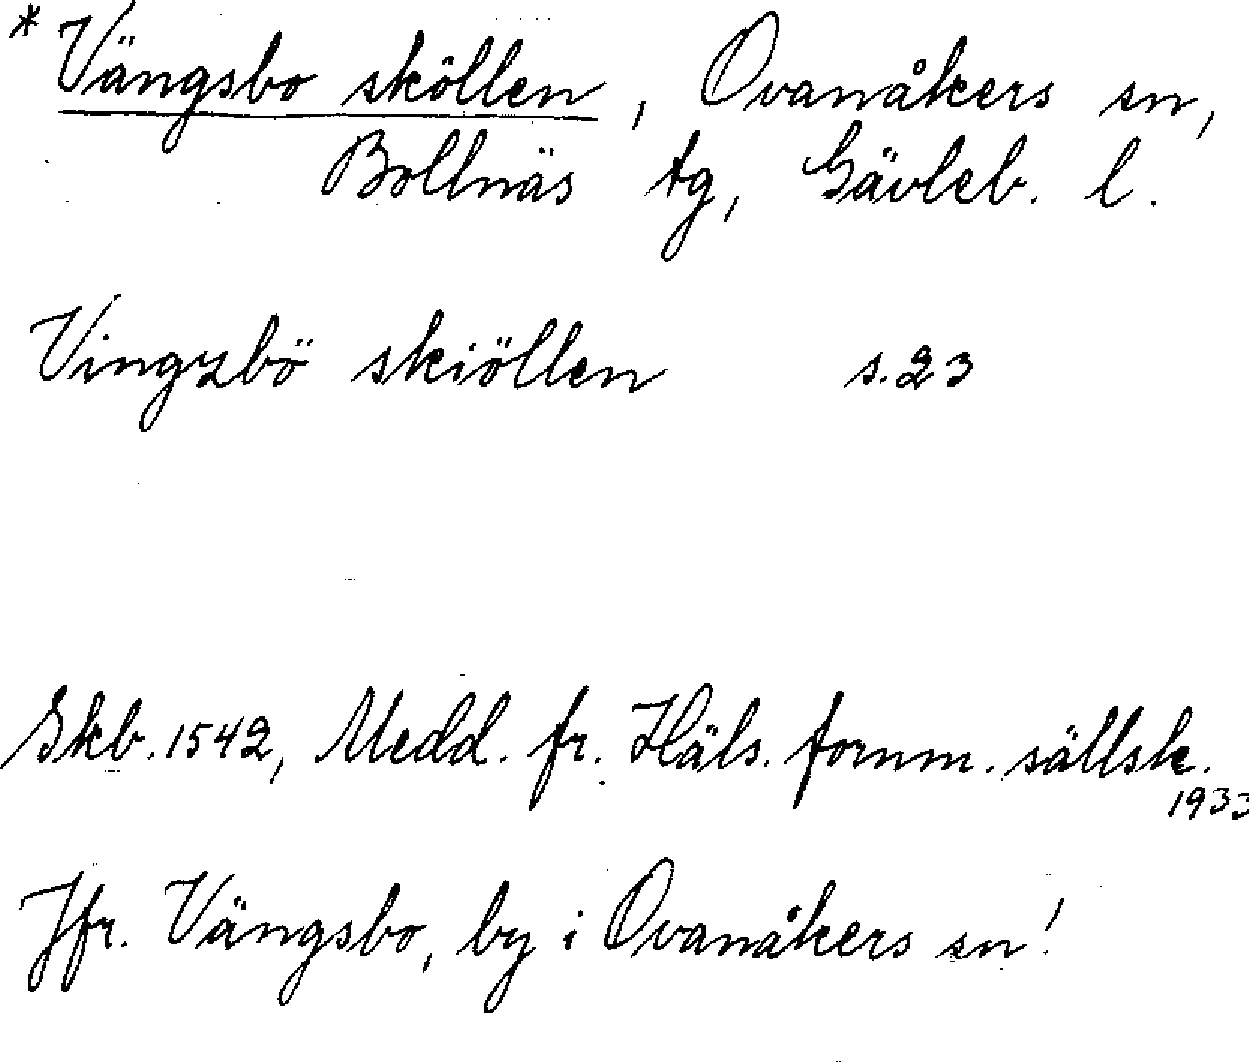 * Vängsbo sköllen, Ovanåkers sn,
Bollnäs tg, Gävleb. l.
Vingzbö skiöllen s. 23
Skb. 1542, Medd. fr. Häls. fornm. sällsk.
1933
Jfr. Vängsbo, by i Ovanåkers sn!